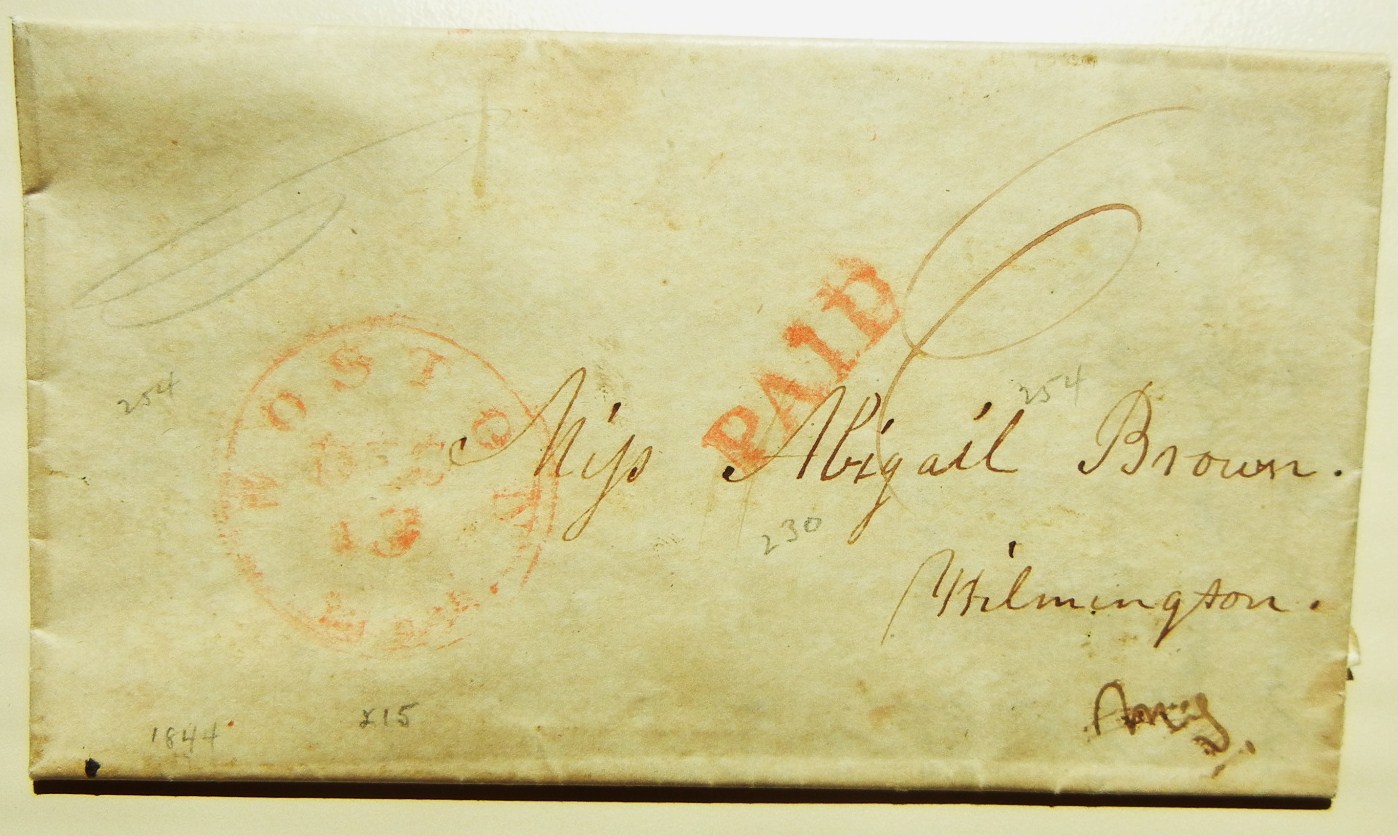 254
BOSTON
13
PAID
6
Miss Abigail Brown.
254
230
Wilmington.
1844
£15